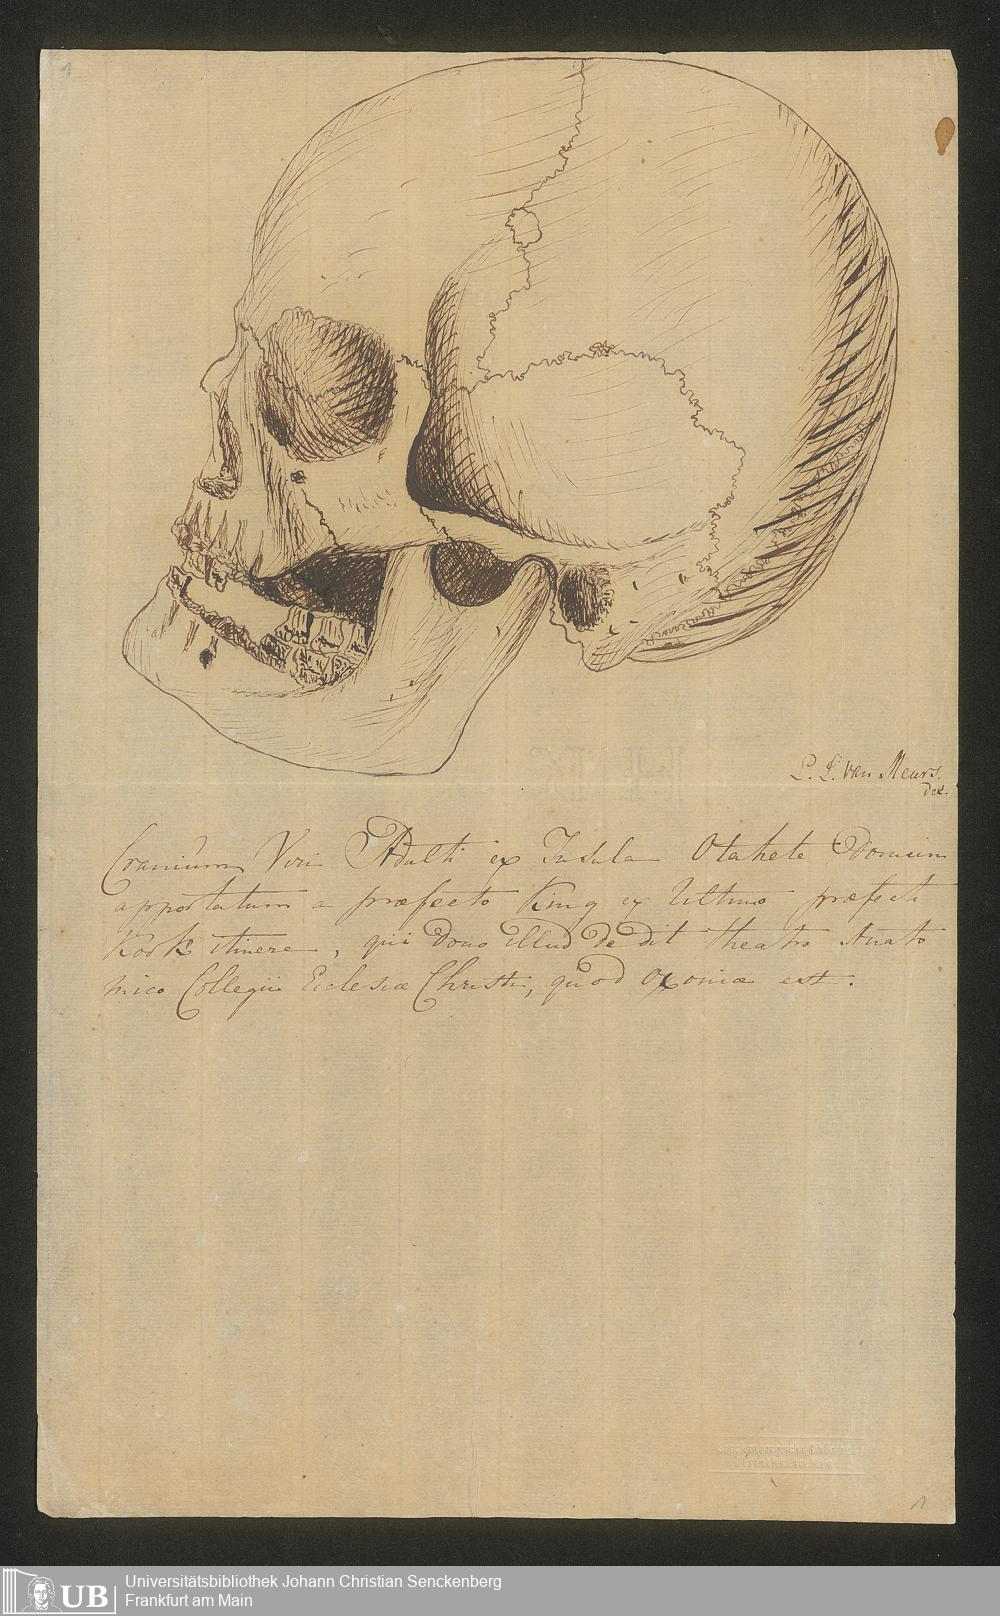 1
L. L. van Meurs.
del.
Cranium Viri Adulti ex Insula Otahete Domum
apportatum a præfecto King ex Ultimo præfecti
Kook itinere, qui Dono illud dedit theatro Anato
mico Collegii Ecclesiæ Christi, quod Oxoniæ est.
1
UB
Universitätsbibliothek Johann Christian Senckenberg
Frankfurt am Main